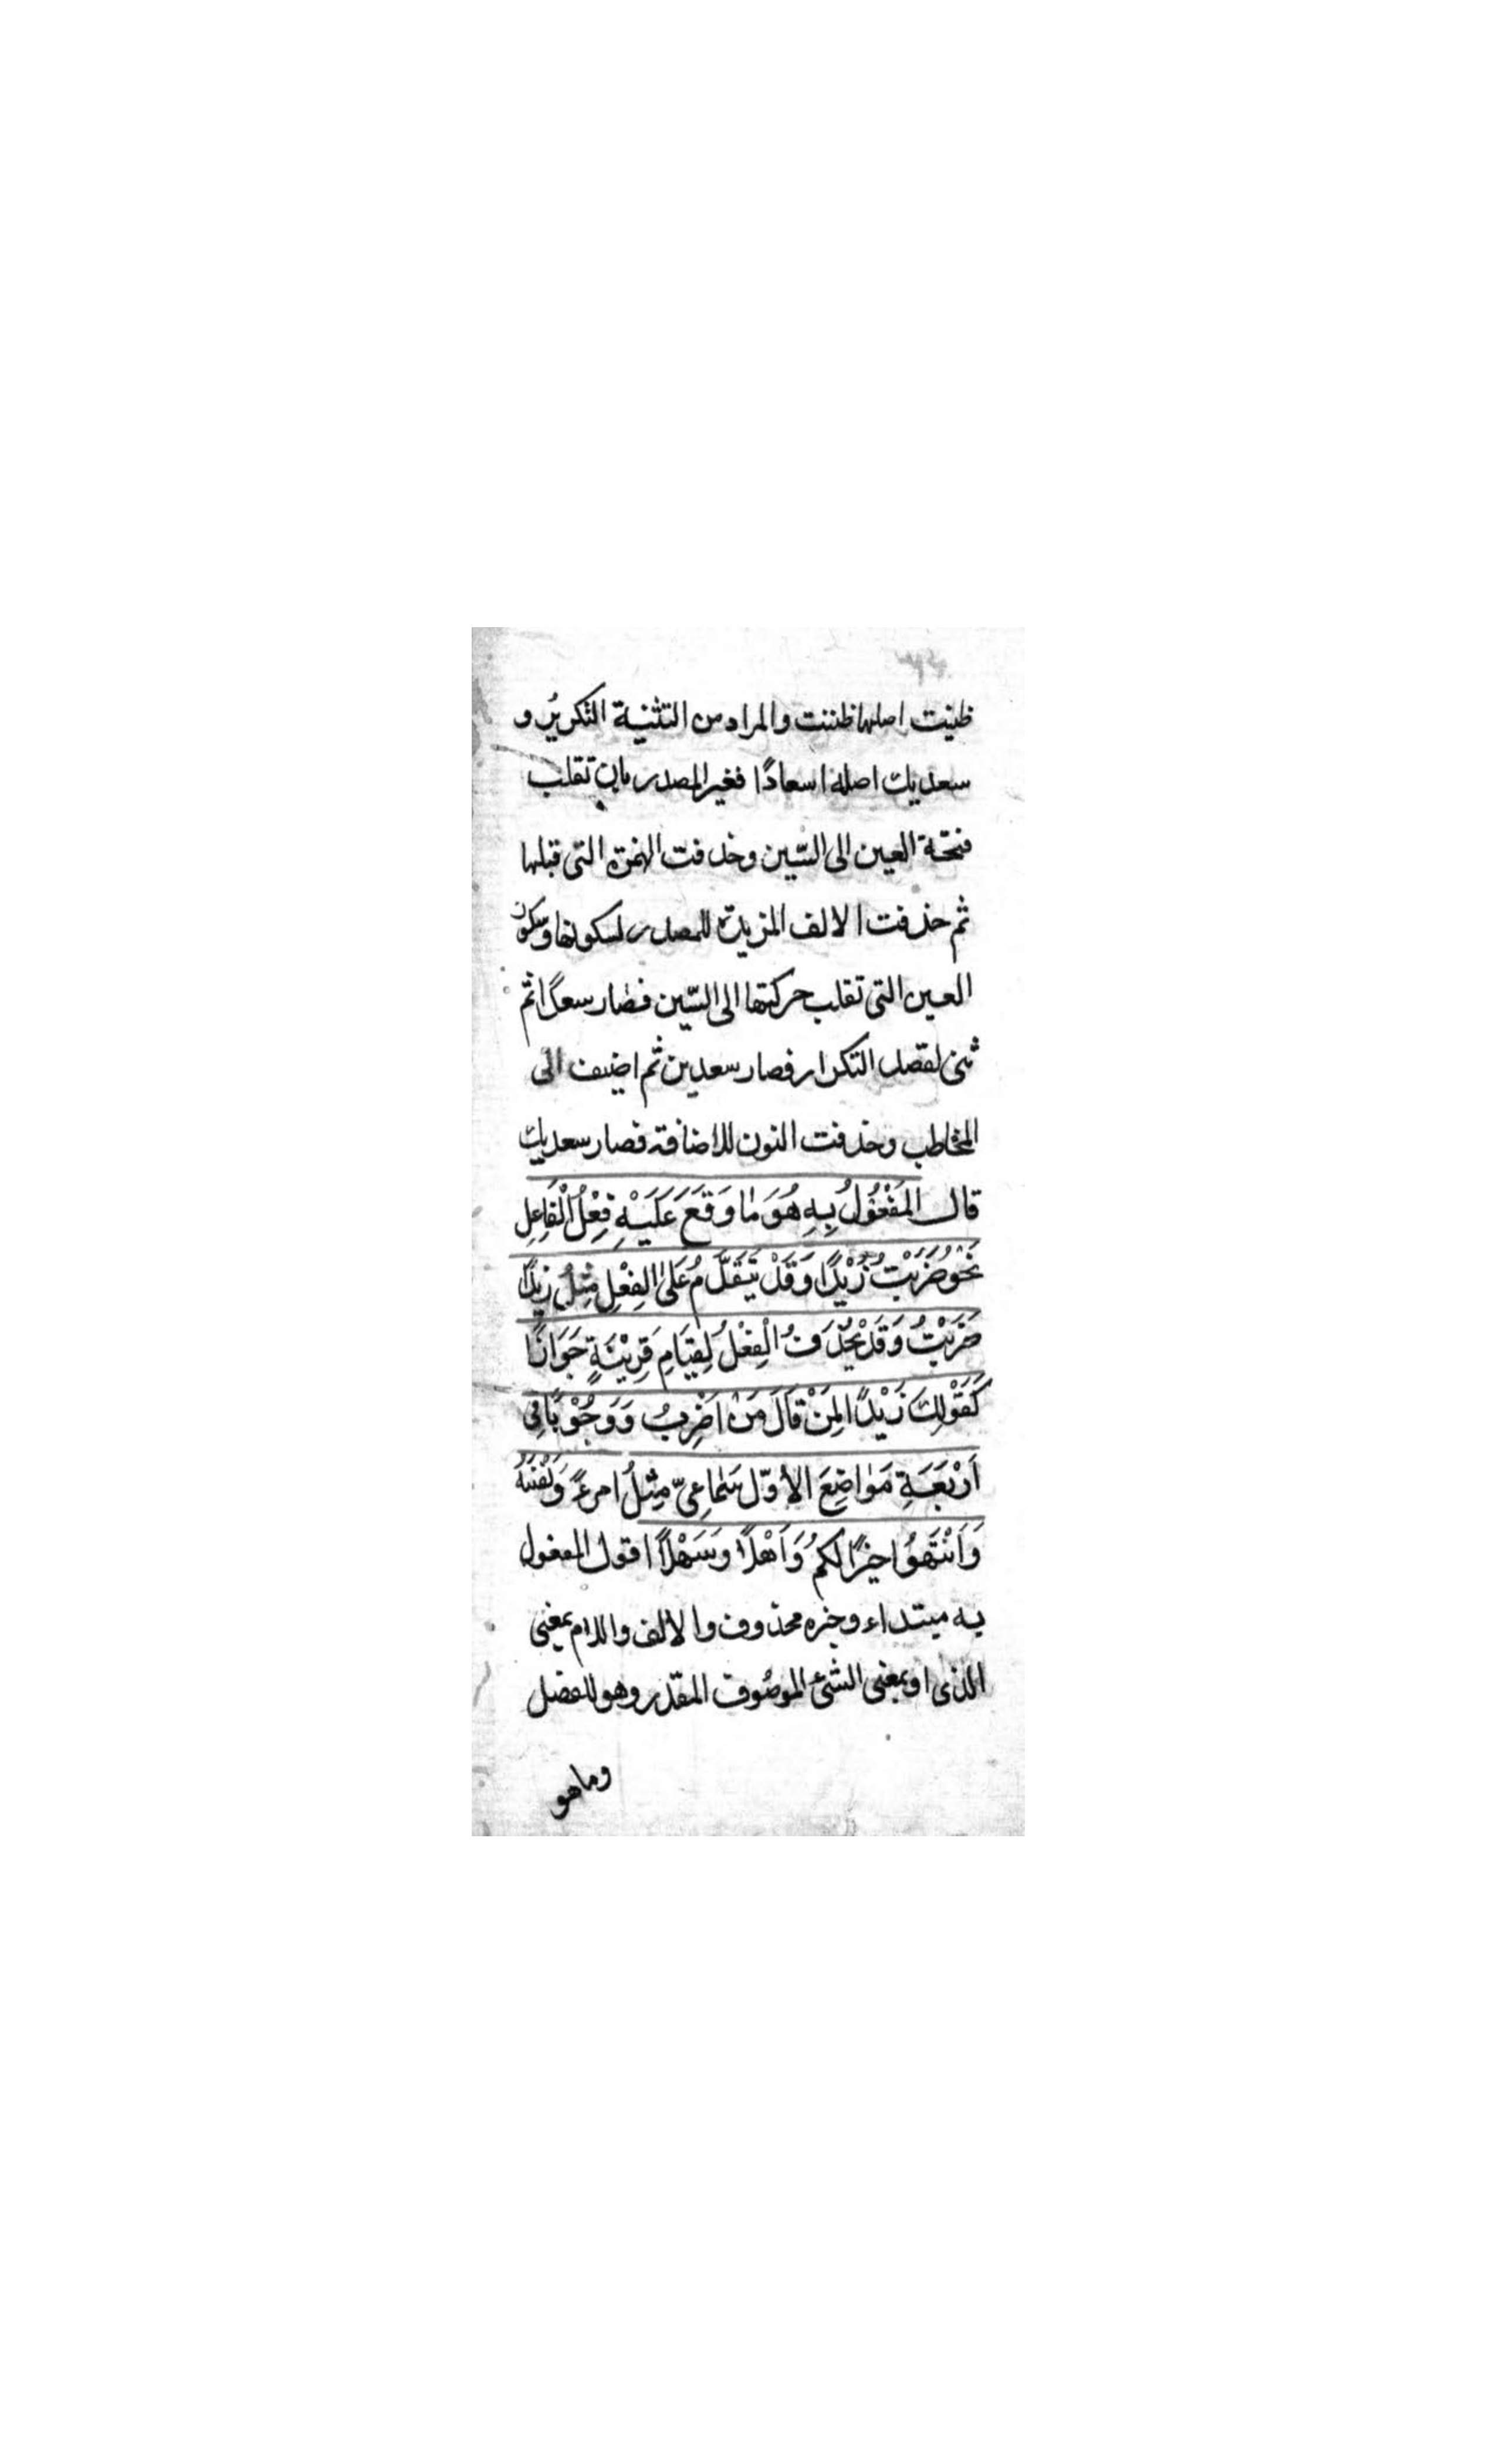 ظنيت اصلها ظننت والمراد من التثنية التكريرُ و
سعديك اصله اسعادًا فغير المصدر بان تقلب
فتحة العين الى السّين وحذفت الهمزة التى قبلها
ثم حذفت الالف المزيدة للمصدر لسكونها وسكون
العين التى تقلب حركتها الى السّين فصار سعدًا ثمّ
ثنى لقصد التكرار فصار سعدين ثم اضيف الى
المخاطب وحذفت النون للاضافة فصار سعديك
قال المَفْعُوْلُ بِهِ هُوَ مَا وَقَعَ عَلَيْهِ فِعْلُ الْفَاعِلِ
نَحْوُ ضَرَبْتُ زَيْدًا وَقَدْ يَتَقَدَّمُ عَلَى الفِعْلِ مِثْلُ زَيْدًا
ضَرَبْتُ وَقَدْ يُحْذَفُ الْفِعْلُ لِقِيَامِ قَرِيْنَةٍ جَوَازًا
كَقَوْلِكَ زَيْدًا لِمَنْ قَالَ مَنْ اَضْرِبُ وَوُجُوْبًا فِى
اَرْبَعَةِ مَوَاضِعَ الأوّل سَمَاعِىّ مِثْلُ امرءً وَنَفْسَهُ
وَاَنْتَهُوْا خيرًا لكمُ وَاَهْلًا وَسَهْلًا اقول المفعول
به مبتداء وخبره محذوف والالف واللام بمعنى
الذى او بمعنى الشئ الموصُوف المقدر وهو للفصل
وما هو